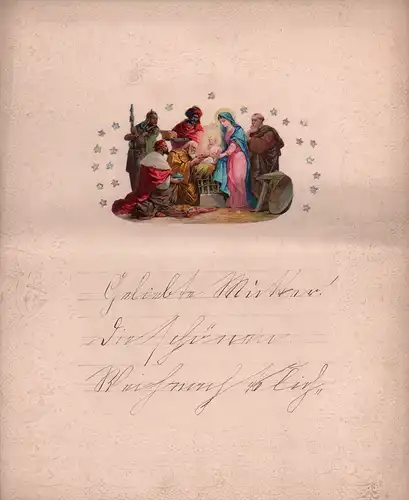 Geliebte Mutter!
Die schönen
Weihnachtslich„